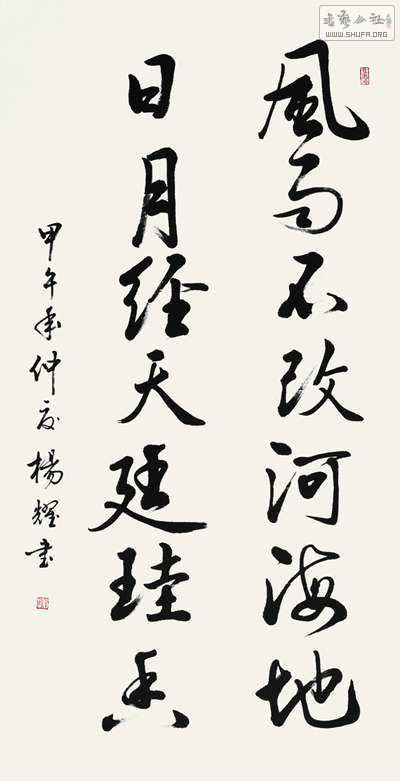 書藝公社
WWW.SHUFA.ORG
風雨不改河海地
日月經天廷珪
甲午年仲夏楊耀書